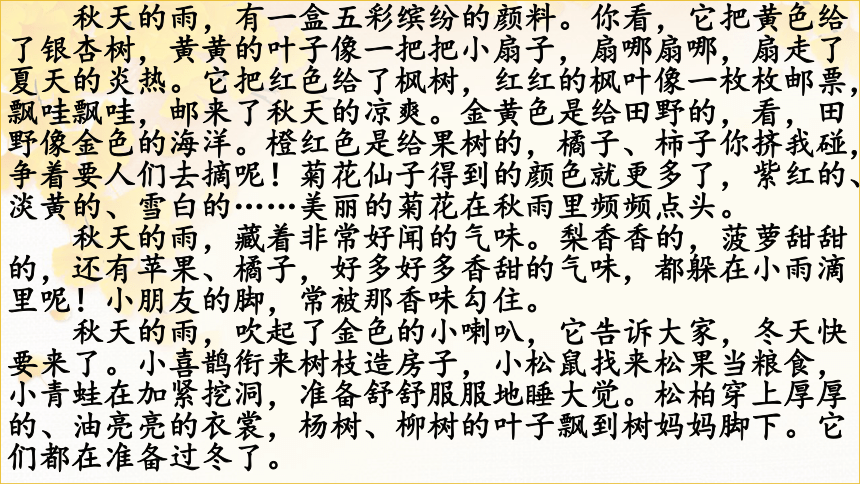 秋天的雨，有一盒五彩缤纷的颜料。你看，它把黄色给
了银杏树，黄黄的叶子像一把把小扇子，扇哪扇哪，扇走了
夏天的炎热。它把红色给了枫树，红红的枫叶像一枚枚邮票，
飘哇飘哇，邮来了秋天的凉爽。金黄色是给田野的，看，田
野像金色的海洋。橙红色是给果树的，橘子、柿子你挤我碰，
争着要人们去摘呢！菊花仙子得到的颜色就更多了，紫红的、
淡黄的、雪白的……美丽的菊花在秋雨里频频点头。
秋天的雨，藏着非常好闻的气味。梨香香的，菠萝甜甜
的，还有苹果、橘子，好多好多香甜的气味，都躲在小雨滴
里呢！小朋友的脚，常被那香味勾住。
秋天的雨，吹起了金色的小喇叭，它告诉大家，冬天快
要来了。小喜鹊衔来树枝造房子，小松鼠找来松果当粮食，
小青蛙在加紧挖洞，准备舒舒服服地睡大觉。松柏穿上厚厚
的、油亮亮的衣裳，杨树、柳树的叶子飘到树妈妈脚下。它
们都在准备过冬了。